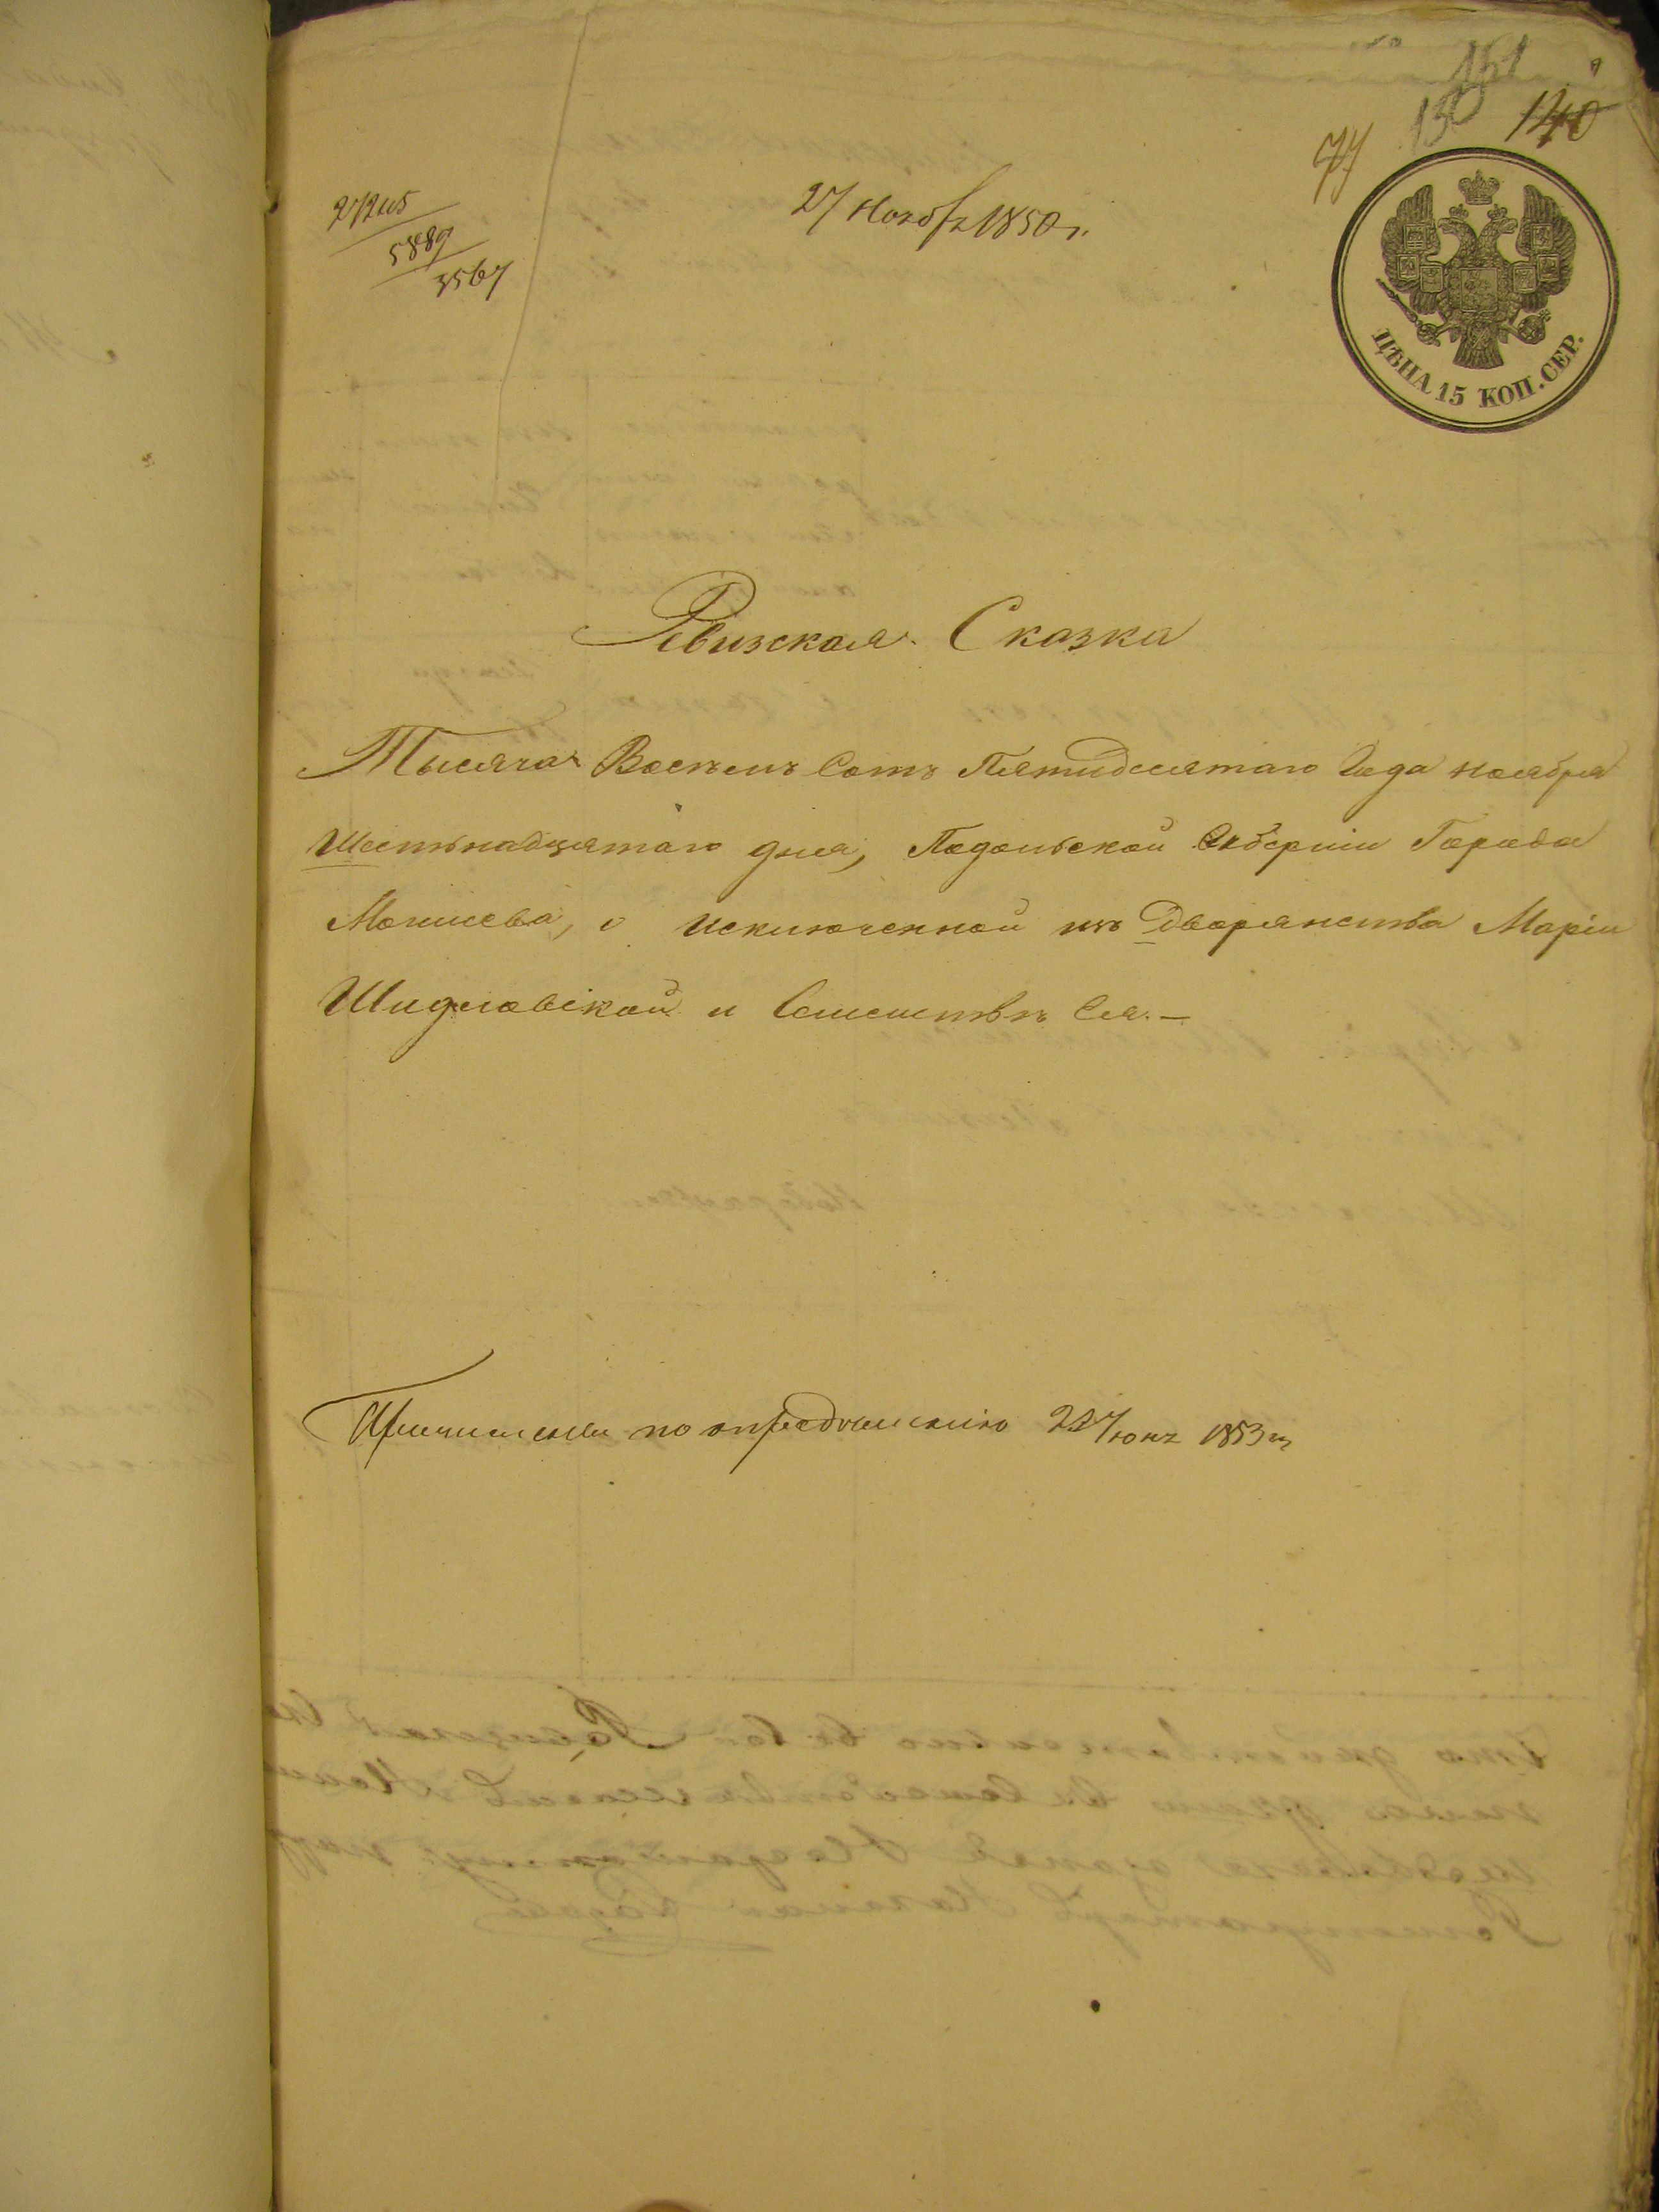 151
130 140
77
27245
5889
3567
27 Ноябр 1850 г.
ЦѢНА 15 КОП. СЕР.
Ревизская Сказка
Тысяча Восемь Сотъ Пятидесятаго Года ноября
Шестьнадцатаго дня, Подольской Губерніи Города
Могилева, о исключенной изъ Дворянства Маріи
Шидловской и Семействѣ Ея. —
Причислены по опредѣленію 1853 г